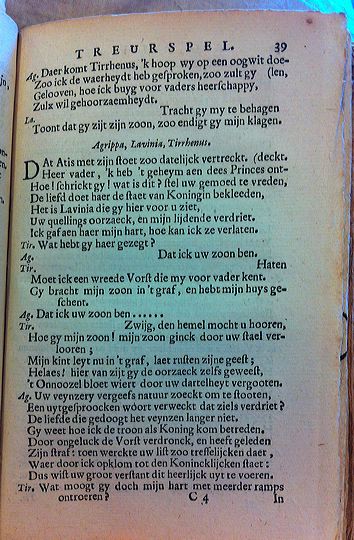 TREURSPEL. 39
Ag. Daer komt Tirrhenus, 'k hoop wy op een oogwit doe-
Zoo ick de waerheydt heb gesproken, zoo zult gy (len,
Gelooven, hoe ick buyg voor vaders heerschappy,
Zulx wil gehoorzaemheydt.
La. Tracht gy my te behagen
Toont dat gy zijt zijn zoon, zoo endigt gy mijn klagen.
Agrippa, Lavinia, Tirrhenus.
DAt Atis met zijn stoet zoo datelijck vertreckt. (deckt.
Heer vader, 'k heb 't geheym aen dees Princes ont-
Hoe! schrickt gy! wat is dit? stel uw gemoed te vreden,
De liefd doet haer de staet van Koningin bekleeden,
Het is Lavinia die gy hier voor u ziet,
Uw quellings oorzaeck, en mijn lijdende verdriet.
Ick gaf aen haer mijn hart, hoe kan ick ze verlaten.
Tir. Wat hebt gy haer gezegt?
Ag. Dat ick uw zoon ben.
Tir. Haten
Moet ick een wreede Vorst die my voor vader kent.
Gy bracht mijn zoon in 't graf, en hebt mijn huys ge-
schent.
Ag. Dat ick uw zoon ben ......
Tir. Zwijg, den hemel mocht u hooren,
Hoe gy mijn zoon! mijn zoon ginck door uw stael ver-
looren;
Mijn kint leyt nu in 't graf, laet rusten zijne geest;
Helaes! hier van zijt gy de oorzaeck zelfs geweest,
't Onnoozel bloet wiert door uw dartelheyt vergooten.
Ag. Uw veynzery vergeefs natuur zoeckt om te stooten,
Een uytgesproocken woort verweckt dat ziels verdriet?
De liefde die gedoogt het veynzen langer niet.
Gy weet hoe ick de troon als Koning kom betreden.
Door ongeluck de Vorst verdronck, en heeft geleden
Zijn straf: toen werckte uw list zoo treffelijcken daer,
Waer door ick opklom tot den Konincklijcken staet:
Dus wist uw groot verstant dit heerlijck uyt te voeren.
Tir. Wat moogt gy doch mijn hart met meerder ramps
ontroeren? C 4 In